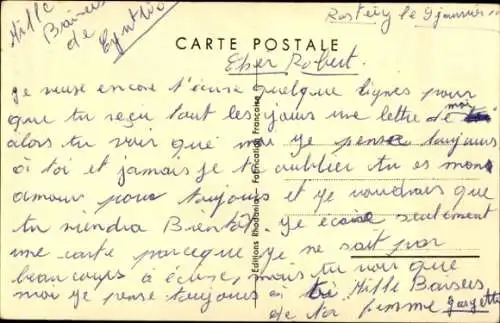 Mille
Baisers
de
Cynthia
le 9 janvier
CARTE POSTALE
Cher Robert.
je veuse encore t'écrire quelque lignes pour
que tu reçu tout les jours une lettre de moi
alors tu voir que moi je pense toujours
à toi et jamais je t'oublier tu es mons
amour pour toujours et je voudrais que
tu viendra Bientôt. je écrire seulement
une carte parceque je ne sait par
beaucoups à écrire, mais tu voir que
moi je pense toujours à toi Mille Baisers
de ta femme
Editions Rhodania - Fabrication Française